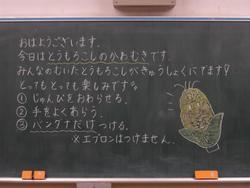 おはようございます。
今日はとうもろこしのかわむきです。
みんなのむいたとうもろこしがきゅうしょくにでます!
とってもとっても楽しみです。
① じゅんびをおわらせる。
② 手をよくあらう。
③ バンダナだけつける。
※エプロンはつけません。